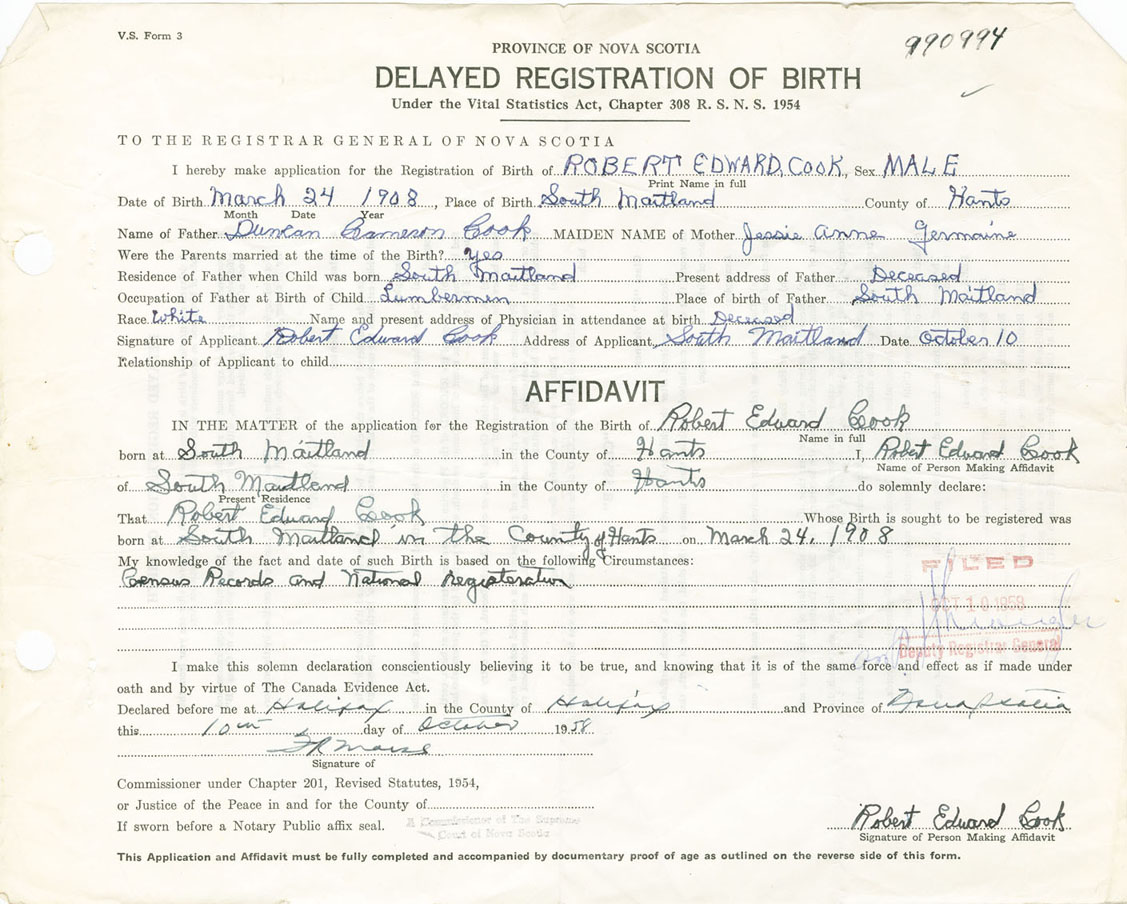 V.S. Form 3
990994
PROVINCE OF NOVA SCOTIA
DELAYED REGISTRATION OF BIRTH
Under the Vital Statistics Act, Chapter 308 R. S. N. S. 1954
TO THE REGISTRAR GENERAL OF NOVA SCOTIA
I hereby make application for the Registration of Birth of ROBERT EDWARD COOK, Sex MALE
Print Name in full
Date of Birth March 24 1908, Place of Birth South Maitland County of Hants
Month Date Year
Name of Father Duncan Cameron Cook MAIDEN NAME of Mother Jessie Anne Germaine
Were the Parents married at the time of the Birth? yes
Residence of Father when Child was born South Maitland Present address of Father Deceased
Occupation of Father at Birth of Child Lumbermen Place of birth of Father South Maitland
Race White Name and present address of Physician in attendance at birth Deceased
Signature of Applicant Robert Edward Cook Address of Applicant South Maitland Date October 10
Relationship of Applicant to child
AFFIDAVIT
IN THE MATTER of the application for the Registration of the Birth of Robert Edward Cook
Name in full
born at South Maitland in the County of Hants I, Robert Edward Cook
Name of Person Making Affidavit
of South Maitland in the County of Hants do solemnly declare:
Present Residence
That Robert Edward Cook Whose Birth is sought to be registered was
born at South Maitland in the County of Hants on March 24, 1908
My knowledge of the fact and date of such Birth is based on the following Circumstances:
Census Records and National Registeration
FILED
OCT 10 1958
Deputy Registrar General
I make this solemn declaration conscientiously believing it to be true, and knowing that it is of the same force and effect as if made under
oath and by virtue of The Canada Evidence Act.
Declared before me at Halifax in the County of Halifax and Province of Nova Scotia
this 10th day of October 1958
Signature of
Commissioner under Chapter 201, Revised Statutes, 1954,
or Justice of the Peace in and for the County of
If sworn before a Notary Public affix seal.
A Commissioner of The Supreme
Court of Nova Scotia
Robert Edward Cook
Signature of Person Making Affidavit
This Application and Affidavit must be fully completed and accompanied by documentary proof of age as outlined on the reverse side of this form.